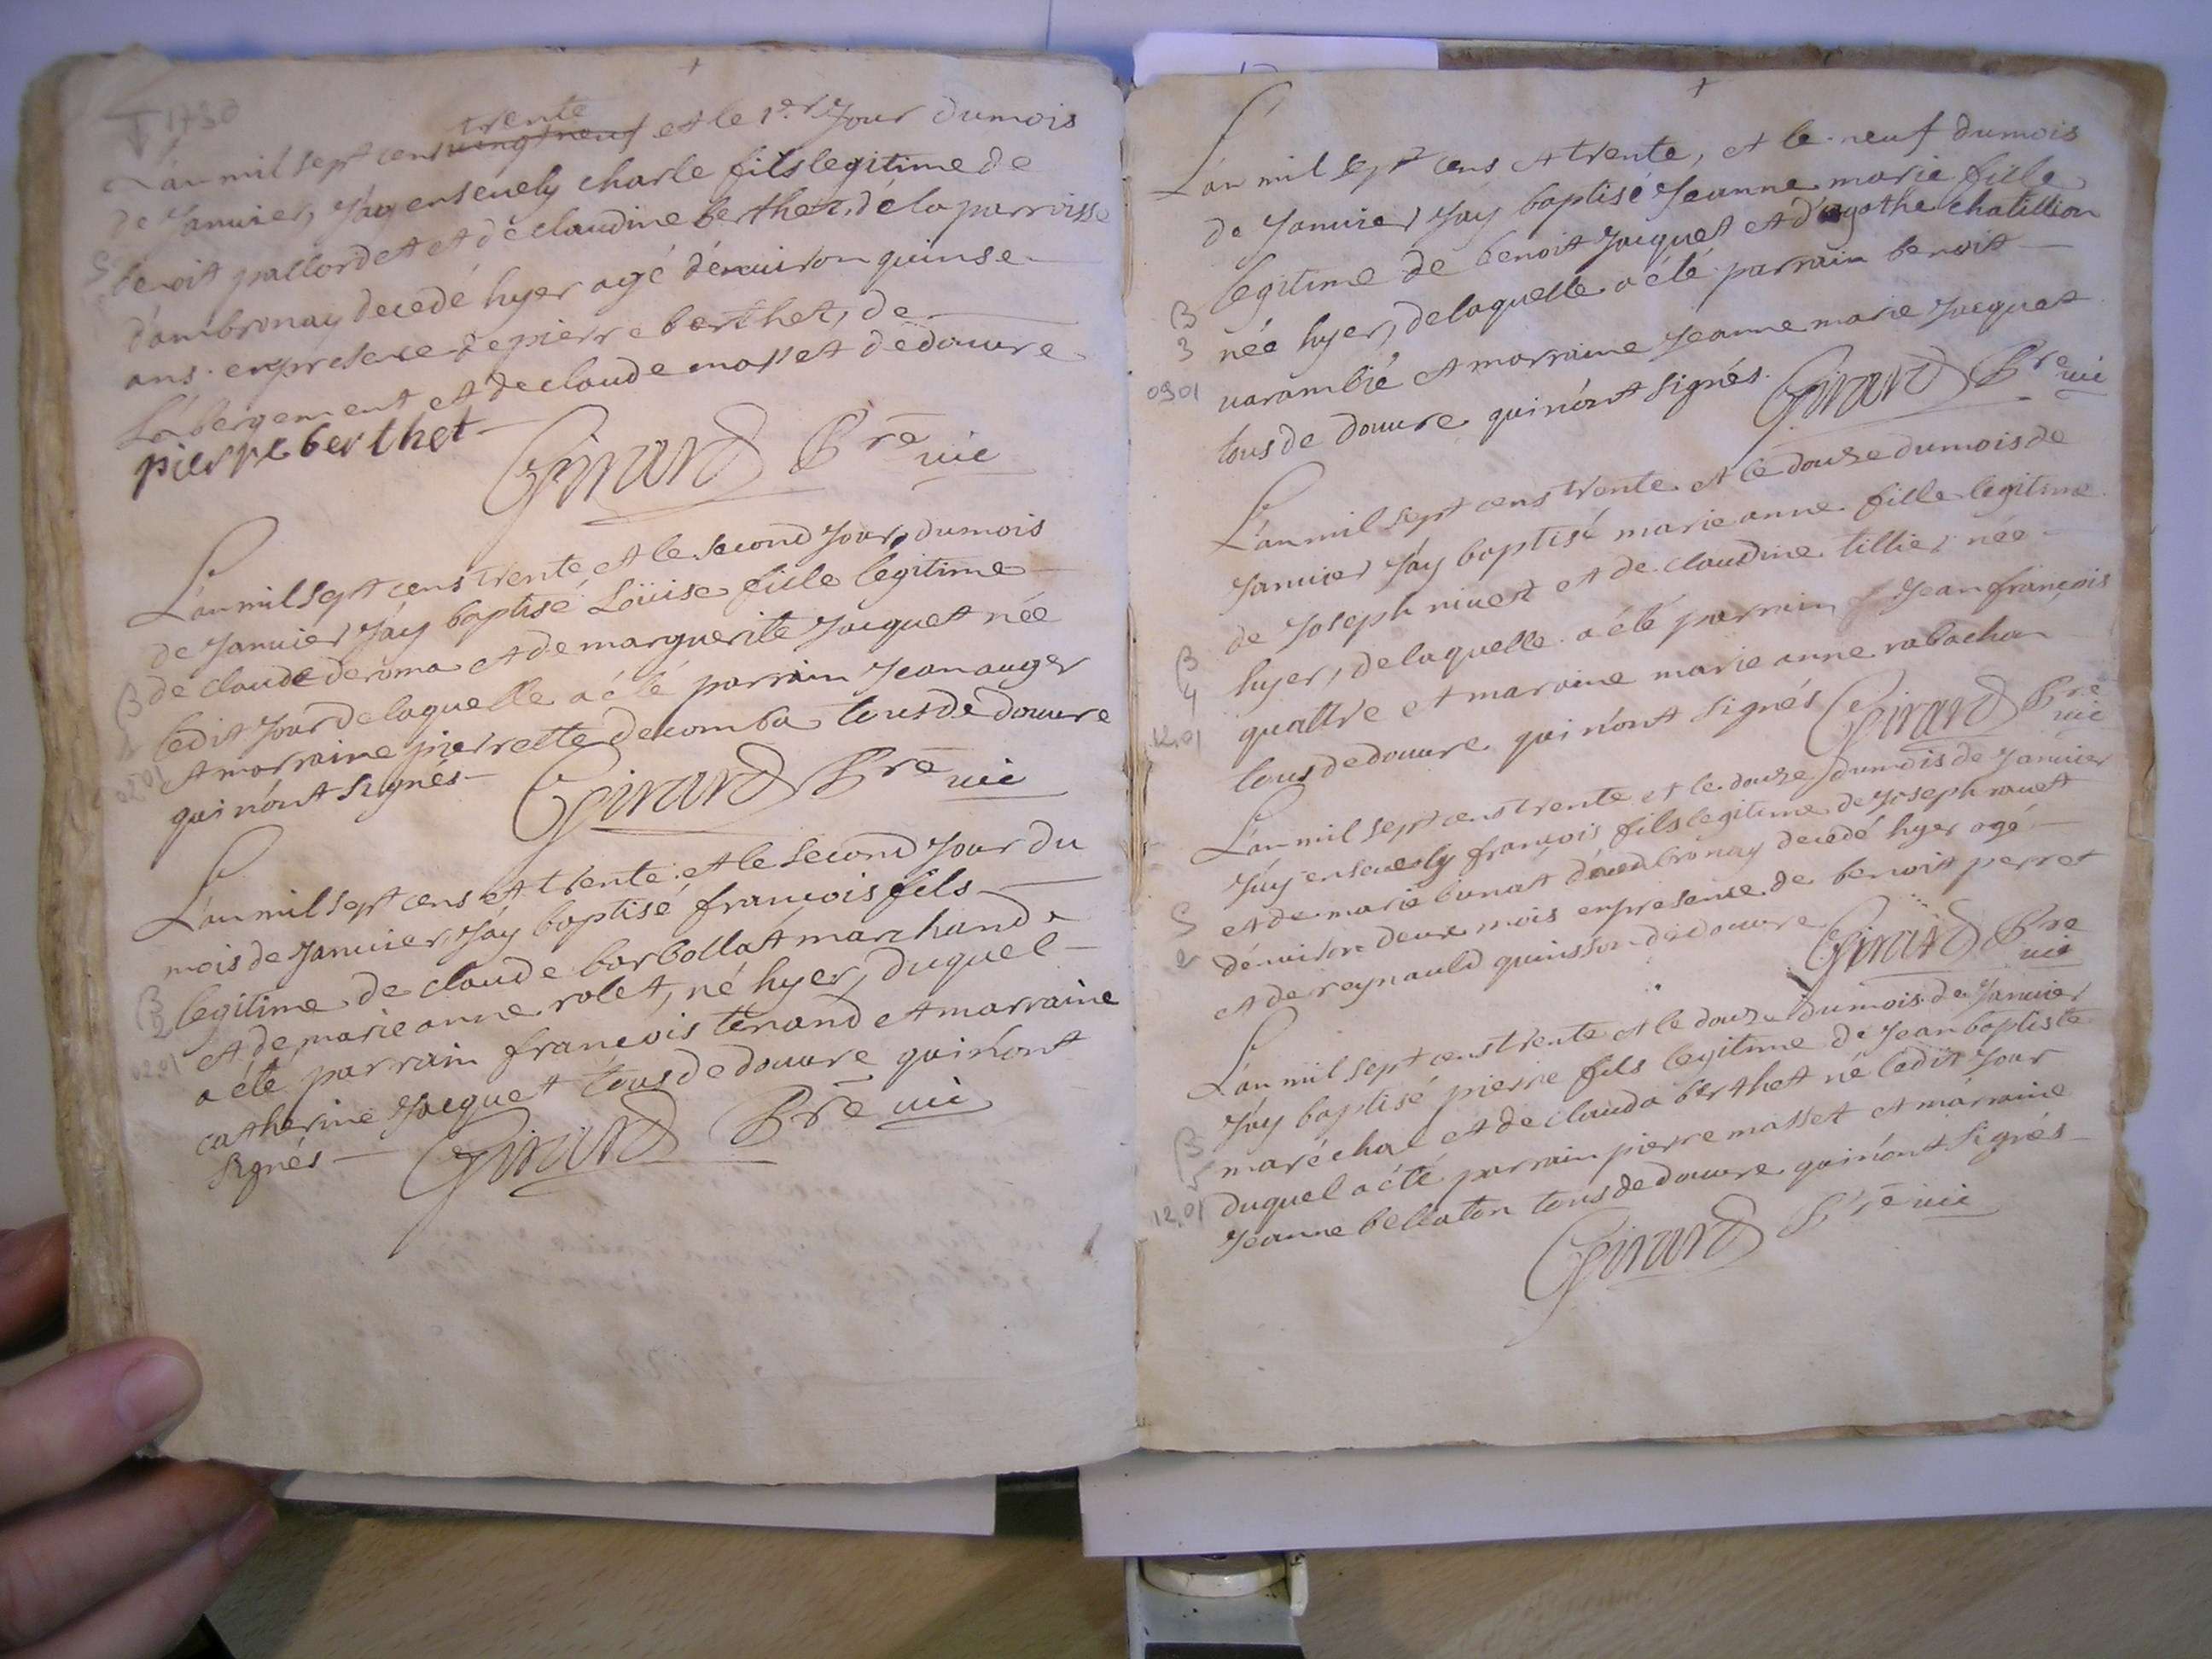 1730
trente
L'an mil sept cens vingt neuf et le 1.er Jour dumois
de Januier, J'ay enseuely charle fils legitime de
S benoit pallordet et de claudine berthet, de la parroisse
d'ambronay decedé hyer agé d'enuiron quinse
ans. en presence de pierre berthet, de
L'abergement et de claude masset dedouure
pierre berthet
Girard Pre vic
L'an mil sept cens trente et le second Jour, dumois
de Januier J'ay baptisé Loüise fille legitime
B de claude deroma et de marguerite Jacquet née
1 ledit Jour de laquelle a été parrain Jean auger
02.01 et marraine pierrette decomba tous de douure
qui n'ont signés
Girard Pre vic
L'an mil sept cens et trente et le second Jour du
mois de Januier, J'ay baptisé françois fils
B legitime de claude borbollat marchand
2 et de marie anne rolet, né hyer, duquel
02.01 a été parrain françois tenand et marraine
catherine Jacquet tous de douure qui n'ont
signés
Girard Pre vic
L'an mil sept cens et trente, et le neuf dumois
de Januier J'ay baptisé Jeanne marie fille
legitime de benoit Jacquet et d'agathe chatillion
B 3 née hyer, de laquelle a été parrain benoit
09.01 varambié et marraine Jeanne marie Jacquet
tous de douure qui n'ont signés. Girard Pre vic
L'an mil sept cens trente et le douze dumois de
Januier J'ay baptisé marie anne fille legitime
de Joseph niuet et de claudine tillier née
B 4 hyer, de laquelle a été parrain Jean françois
12.01 quattre et maraine marie anne rabachon
tous de douure qui n'ont signés Girard Pre vic
L'an mil sept cens trente et le douze dumois de Januier
J'ay enseuely françois fils legitime de Joseph
S et de marie d'ambronay decedé hyer agé
2 d'enuiron deux mois en presence de benoit perret
et de reynauld quinsson de douure Girard Pre vic
L'an mil sept cens trente et le douze dumois de Januier
J'ay baptisé pierre fils legitime de Jean baptiste
B maréchal et de clauda berthet né ledit Jour
5 duquel a été parrain pierre masset et marraine
12.01 Jeanne bellaton tous de douure qui n'ont signés
Girard Pre vic